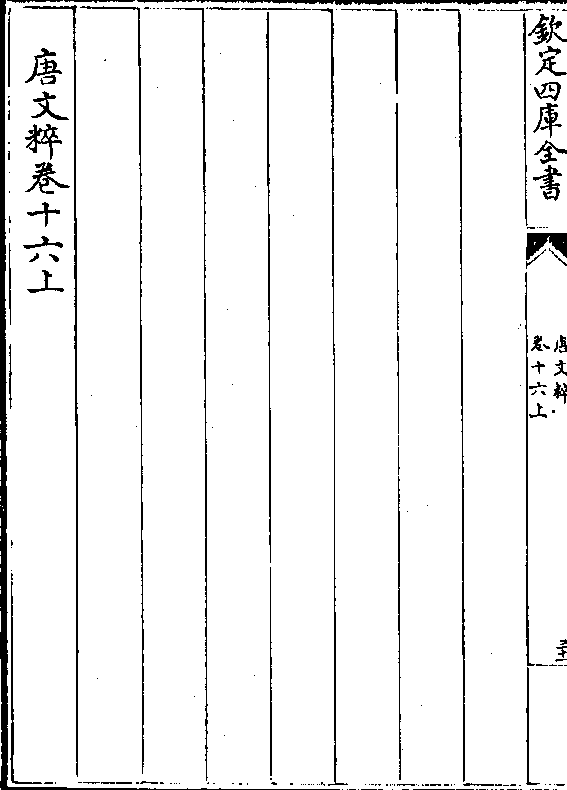 欽定四庫全書
唐文粹
卷十六上
唐文粹卷十六上